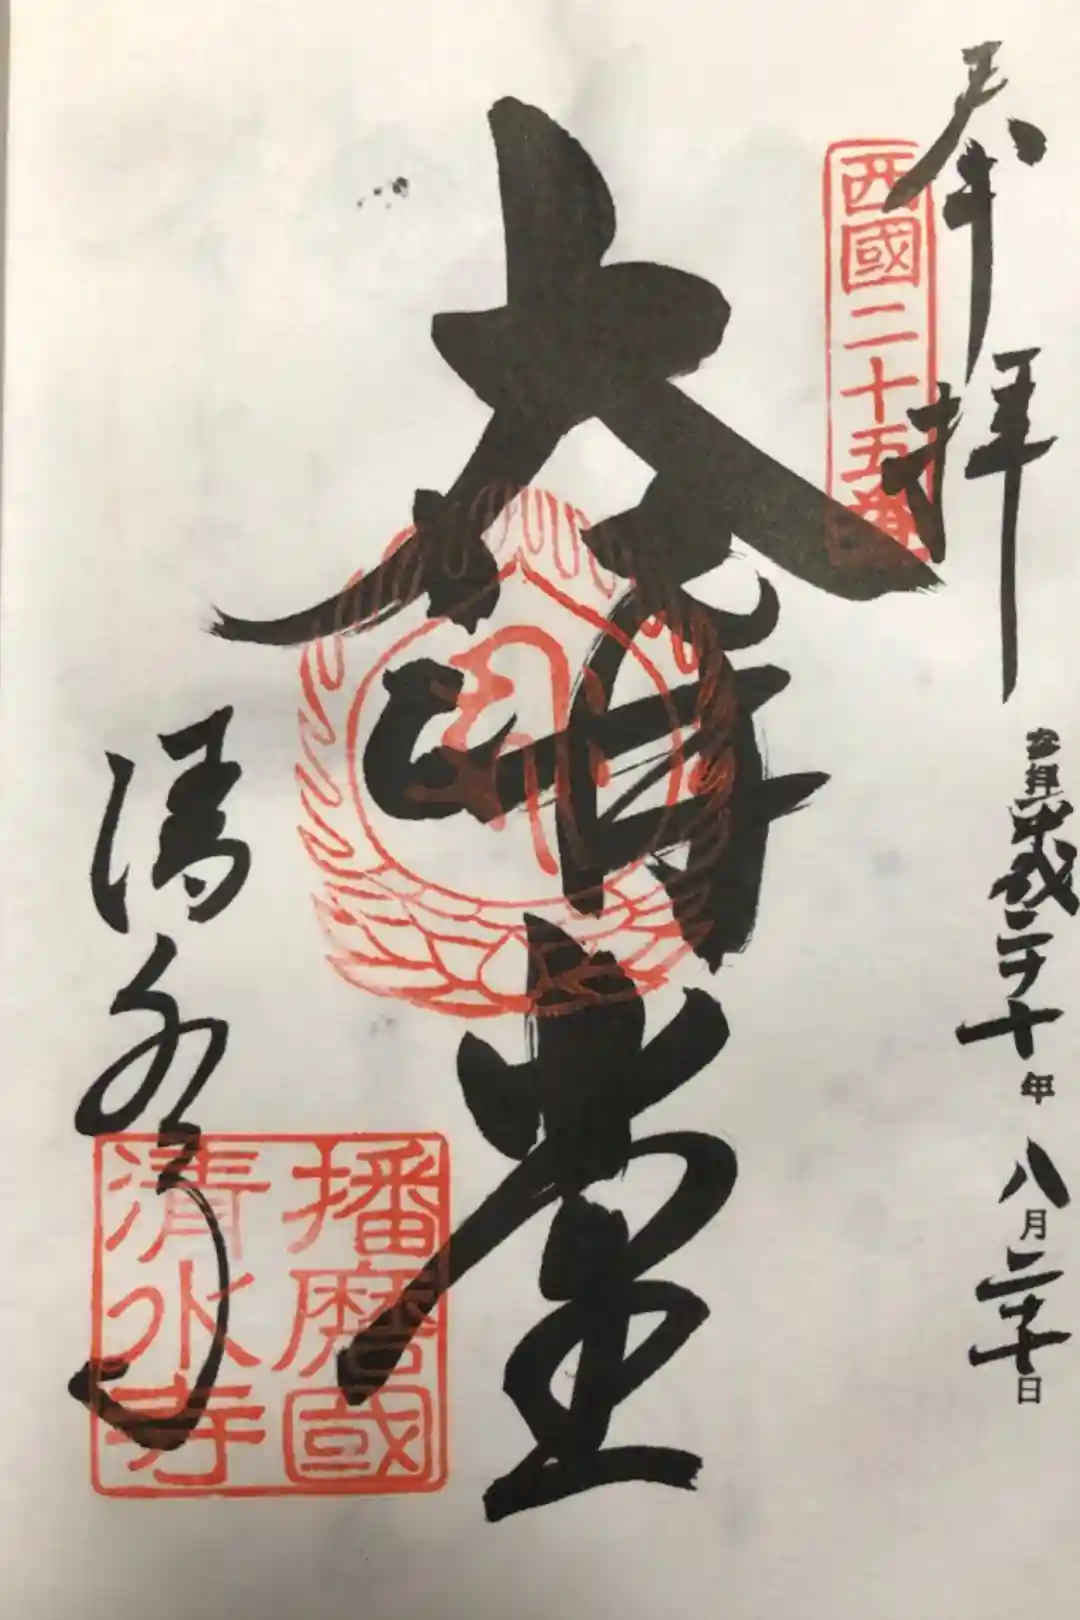 奉拝
西國二十五番
参拝平成三十年八月三十日
大講堂
清水寺
播磨國
清水寺